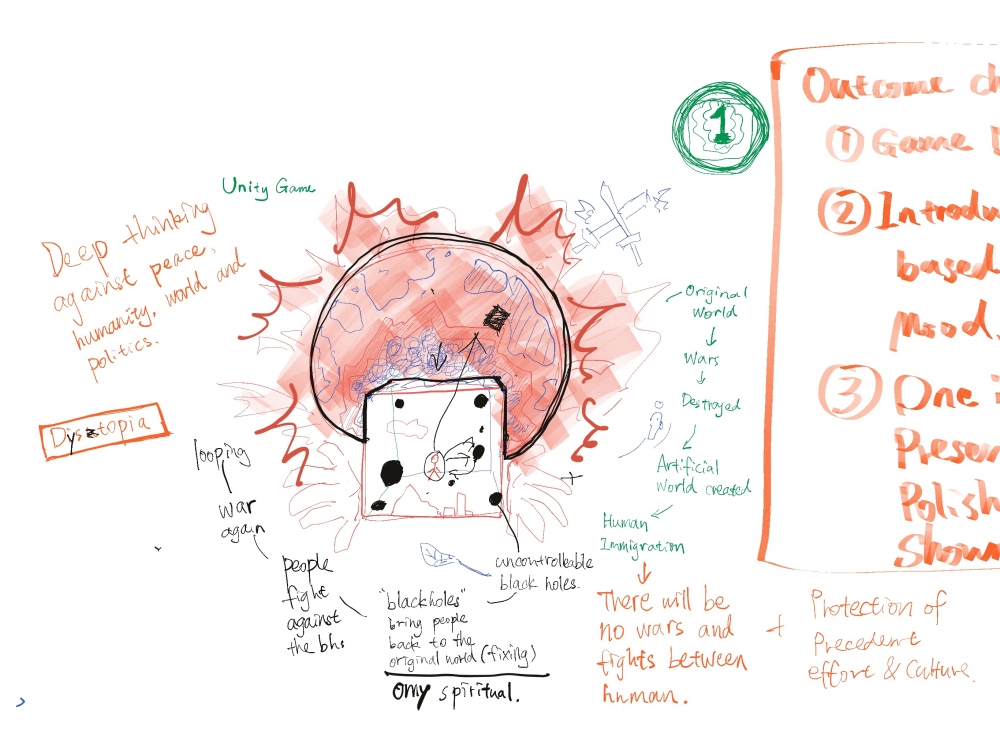 Unity Game
Deep thinking
against peace,
humanity, world and
politics.
Dystopia
1
Original
World
Wars
Destroyed
Artificial
World created
Human
Immigration
There will be
no wars and
fights between
human.
+
Protection of
Precedent
effort & Culture.
uncontrolleable
black holes.
"blackholes"
bring people
back to the
original world (fixing)
only spiritual.
people
fight
against
the bhs
war
again
looping
Outcome ch
① Game
② Introdu
based
Mood.
③ One i
Presen
Polish
Show